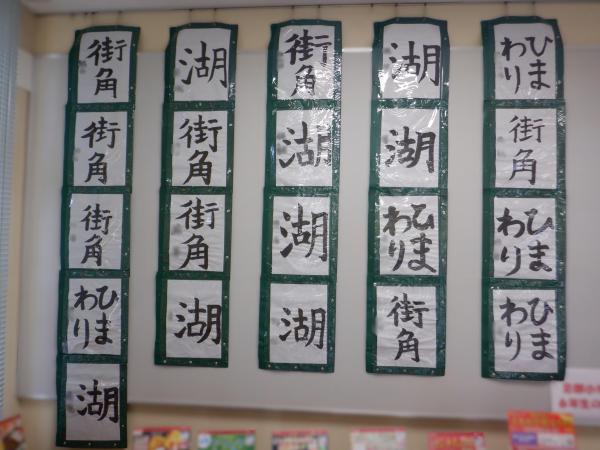 ひま
わり
街角
ひま
わり
ひま
わり
湖
湖
ひま
わり
街角
街角
湖
湖
湖
湖
街角
街角
湖
街角
街角
街角
ひま
わり
湖